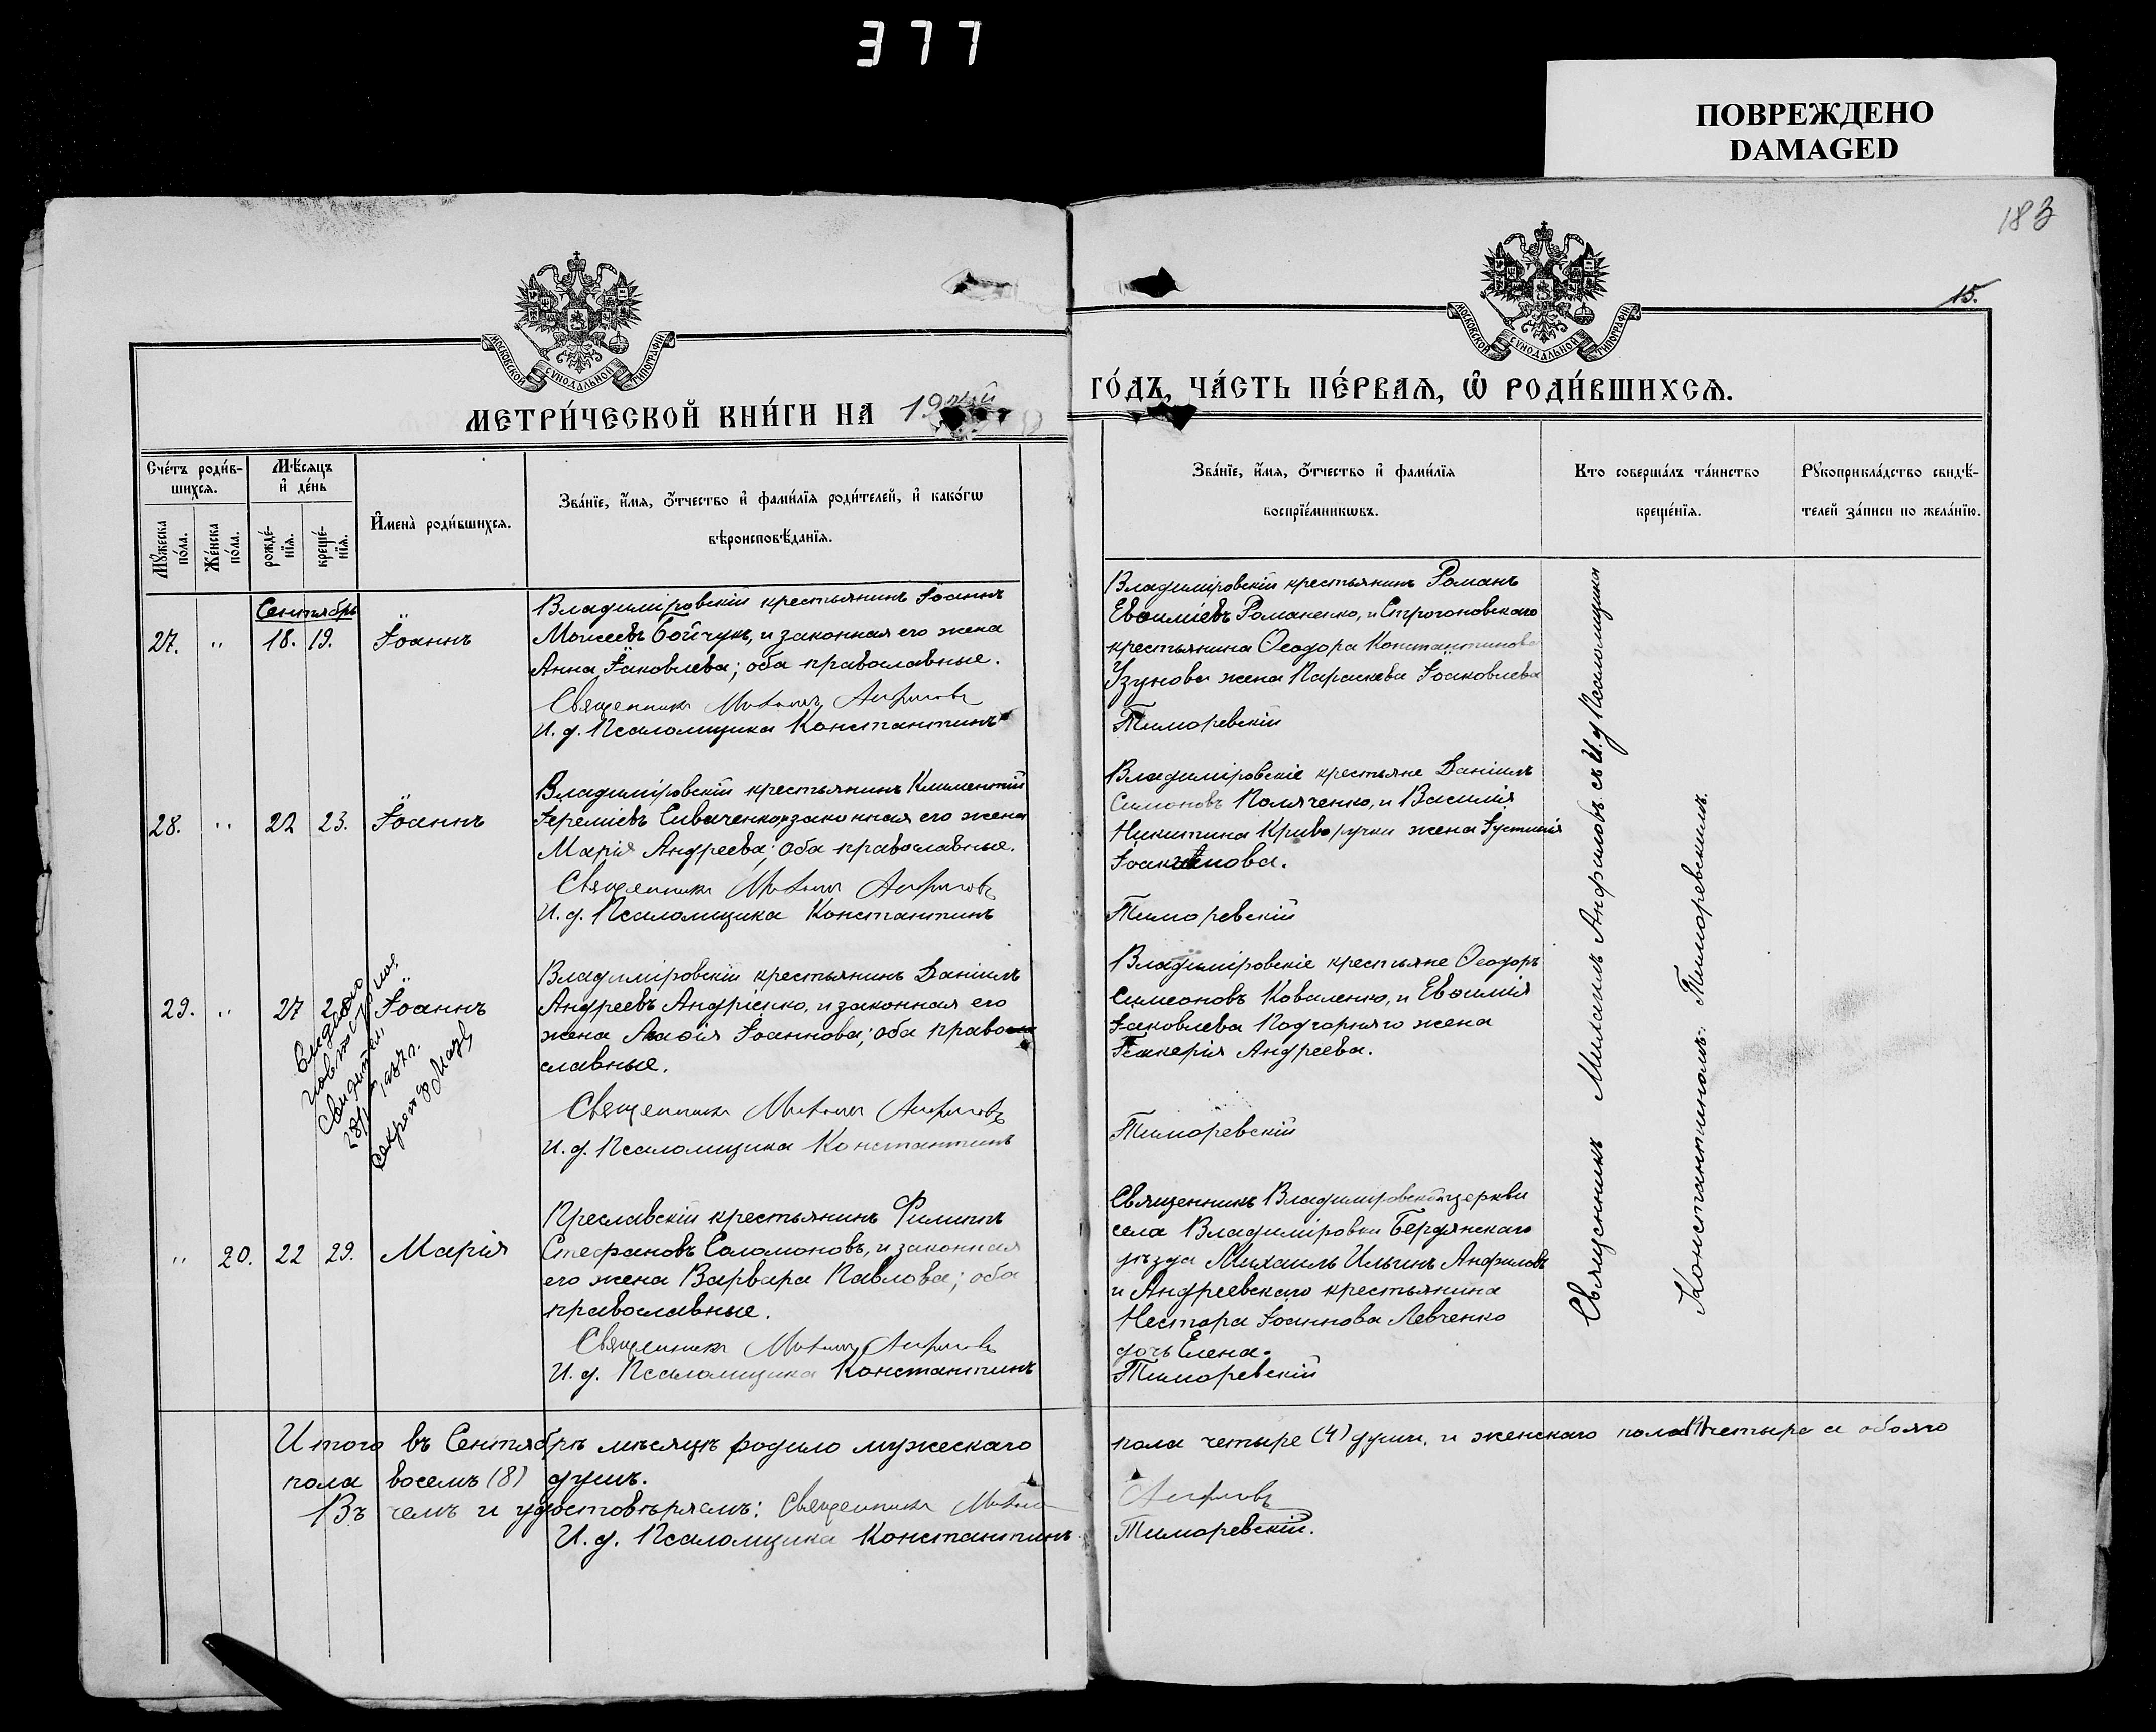 377
ПОВРЕЖДЕНО
DAMAGED
183
15.
МОСКОВСКОЙ СѴНОДАЛЬНОЙ ТИПОГРАФІИ
МОСКОВСКОЙ СѴНОДАЛЬНОЙ ТИПОГРАФІИ
МЕТРИ́ЧЕСКОЙ КНИ́ГИ НА 19
ГО́ДЪ, ЧА́СТЬ ПЕ́РВАЯ, Ѽ РОДИ́ВШИХСЯ.
Сче́тъ роди́в-
шихся.
Мѣ́сяцъ
и҆ де́нь
Мꙋ́жеска
по́ла.
Же́нска
по́ла.
рожде́-
нїя.
креще́-
нїя.
И҆мена̀ роди́вшихся.
Зва́нїе, и҆́мя, ѻ҆́тчество и҆ фами́лїя роди́телей, и҆ како́гѡ
вѣроисповѣ́данїя.
Зва́нїе, и҆́мя, ѻ҆́тчество и҆ фами́лїя
воспрїе́мникѡвъ.
Кто соверша́лъ та́инство
креще́нїя.
Рꙋкоприкла́дство свидѣ́-
телей за́писи по жела́нїю.
Сентябрь
27. " 18. 19. Іоаннъ
Владиміровскій крестьянинъ Іоаннъ
Моисеевъ Бойчукъ, и законная его жена
Анна Іаковлева; оба православные.
Священникъ Михаилъ Анфиловъ
И. д. Псаломщика Константинъ
Владиміровскій крестьянинъ Романъ
Евѳиміевъ Романенко, и Строгоновскаго
крестьянина Ѳеодора Константинова
Узунова жена Параскева Іаковлева
Тиморевскій
28. " 22 23. Іоаннъ
Владиміровскій крестьянинъ Климентій
Іереміевъ Сиваченко, и законная его жена
Марія Андреева; оба православные.
Священникъ Михаилъ Анфиловъ
И. д. Псаломщика Константинъ
Владиміровскіе крестьяне Даніилъ
Симоновъ Поляченко, и Василія
Никитина Криворучки жена Іустинія
Тиморевскій
29. " 27 2 Іоаннъ
Владиміровскій крестьянинъ Даніилъ
Андреевъ Андріенко, и законная его
жена Іоаннова; оба право
славные.
Священникъ Михаилъ Анфиловъ
И. д. Псаломщика Константинъ
Владиміровскіе крестьяне Ѳеодоръ
Симеоновъ Коваленко, и Евѳимія
Іаковлева Подгорняго жена
Андреева.
Тиморевскій
Выдано
1937 г.
" 20. 22 29. Марія
Преславскій крестьянинъ Филиппъ
Стефановъ Соломоновъ, и законная
его жена Варвара Павлова; оба
православные.
Священникъ Михаилъ Анфиловъ
И. д. Псаломщика Константинъ
Священникъ Владиміровской церкви
села Владиміровки Бердянскаго
уѣзда Михаилъ Ильинъ Анфиловъ
и Андреевскаго крестьянина
Нестора Іоаннова Левченко
дочь Елена.
Тиморевскій
Священникъ Михаилъ Анфиловъ съ И. д. Псаломщика
Константиномъ Тиморевскимъ.
Итого въ Сентябрѣ мѣсяцѣ родило мужескаго
пола четыре (4) души, и женскаго пола (4) четыре а обоего
пола восемь (8) душъ.
Въ чемъ и удостовѣряемъ: Священникъ Михаилъ
Анфиловъ
И. д. Псаломщика Константинъ
Тиморевскій.